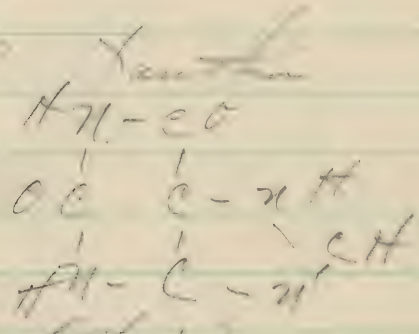 Xanthin
HN - CO
OC C - NH
CH
HN - C - N